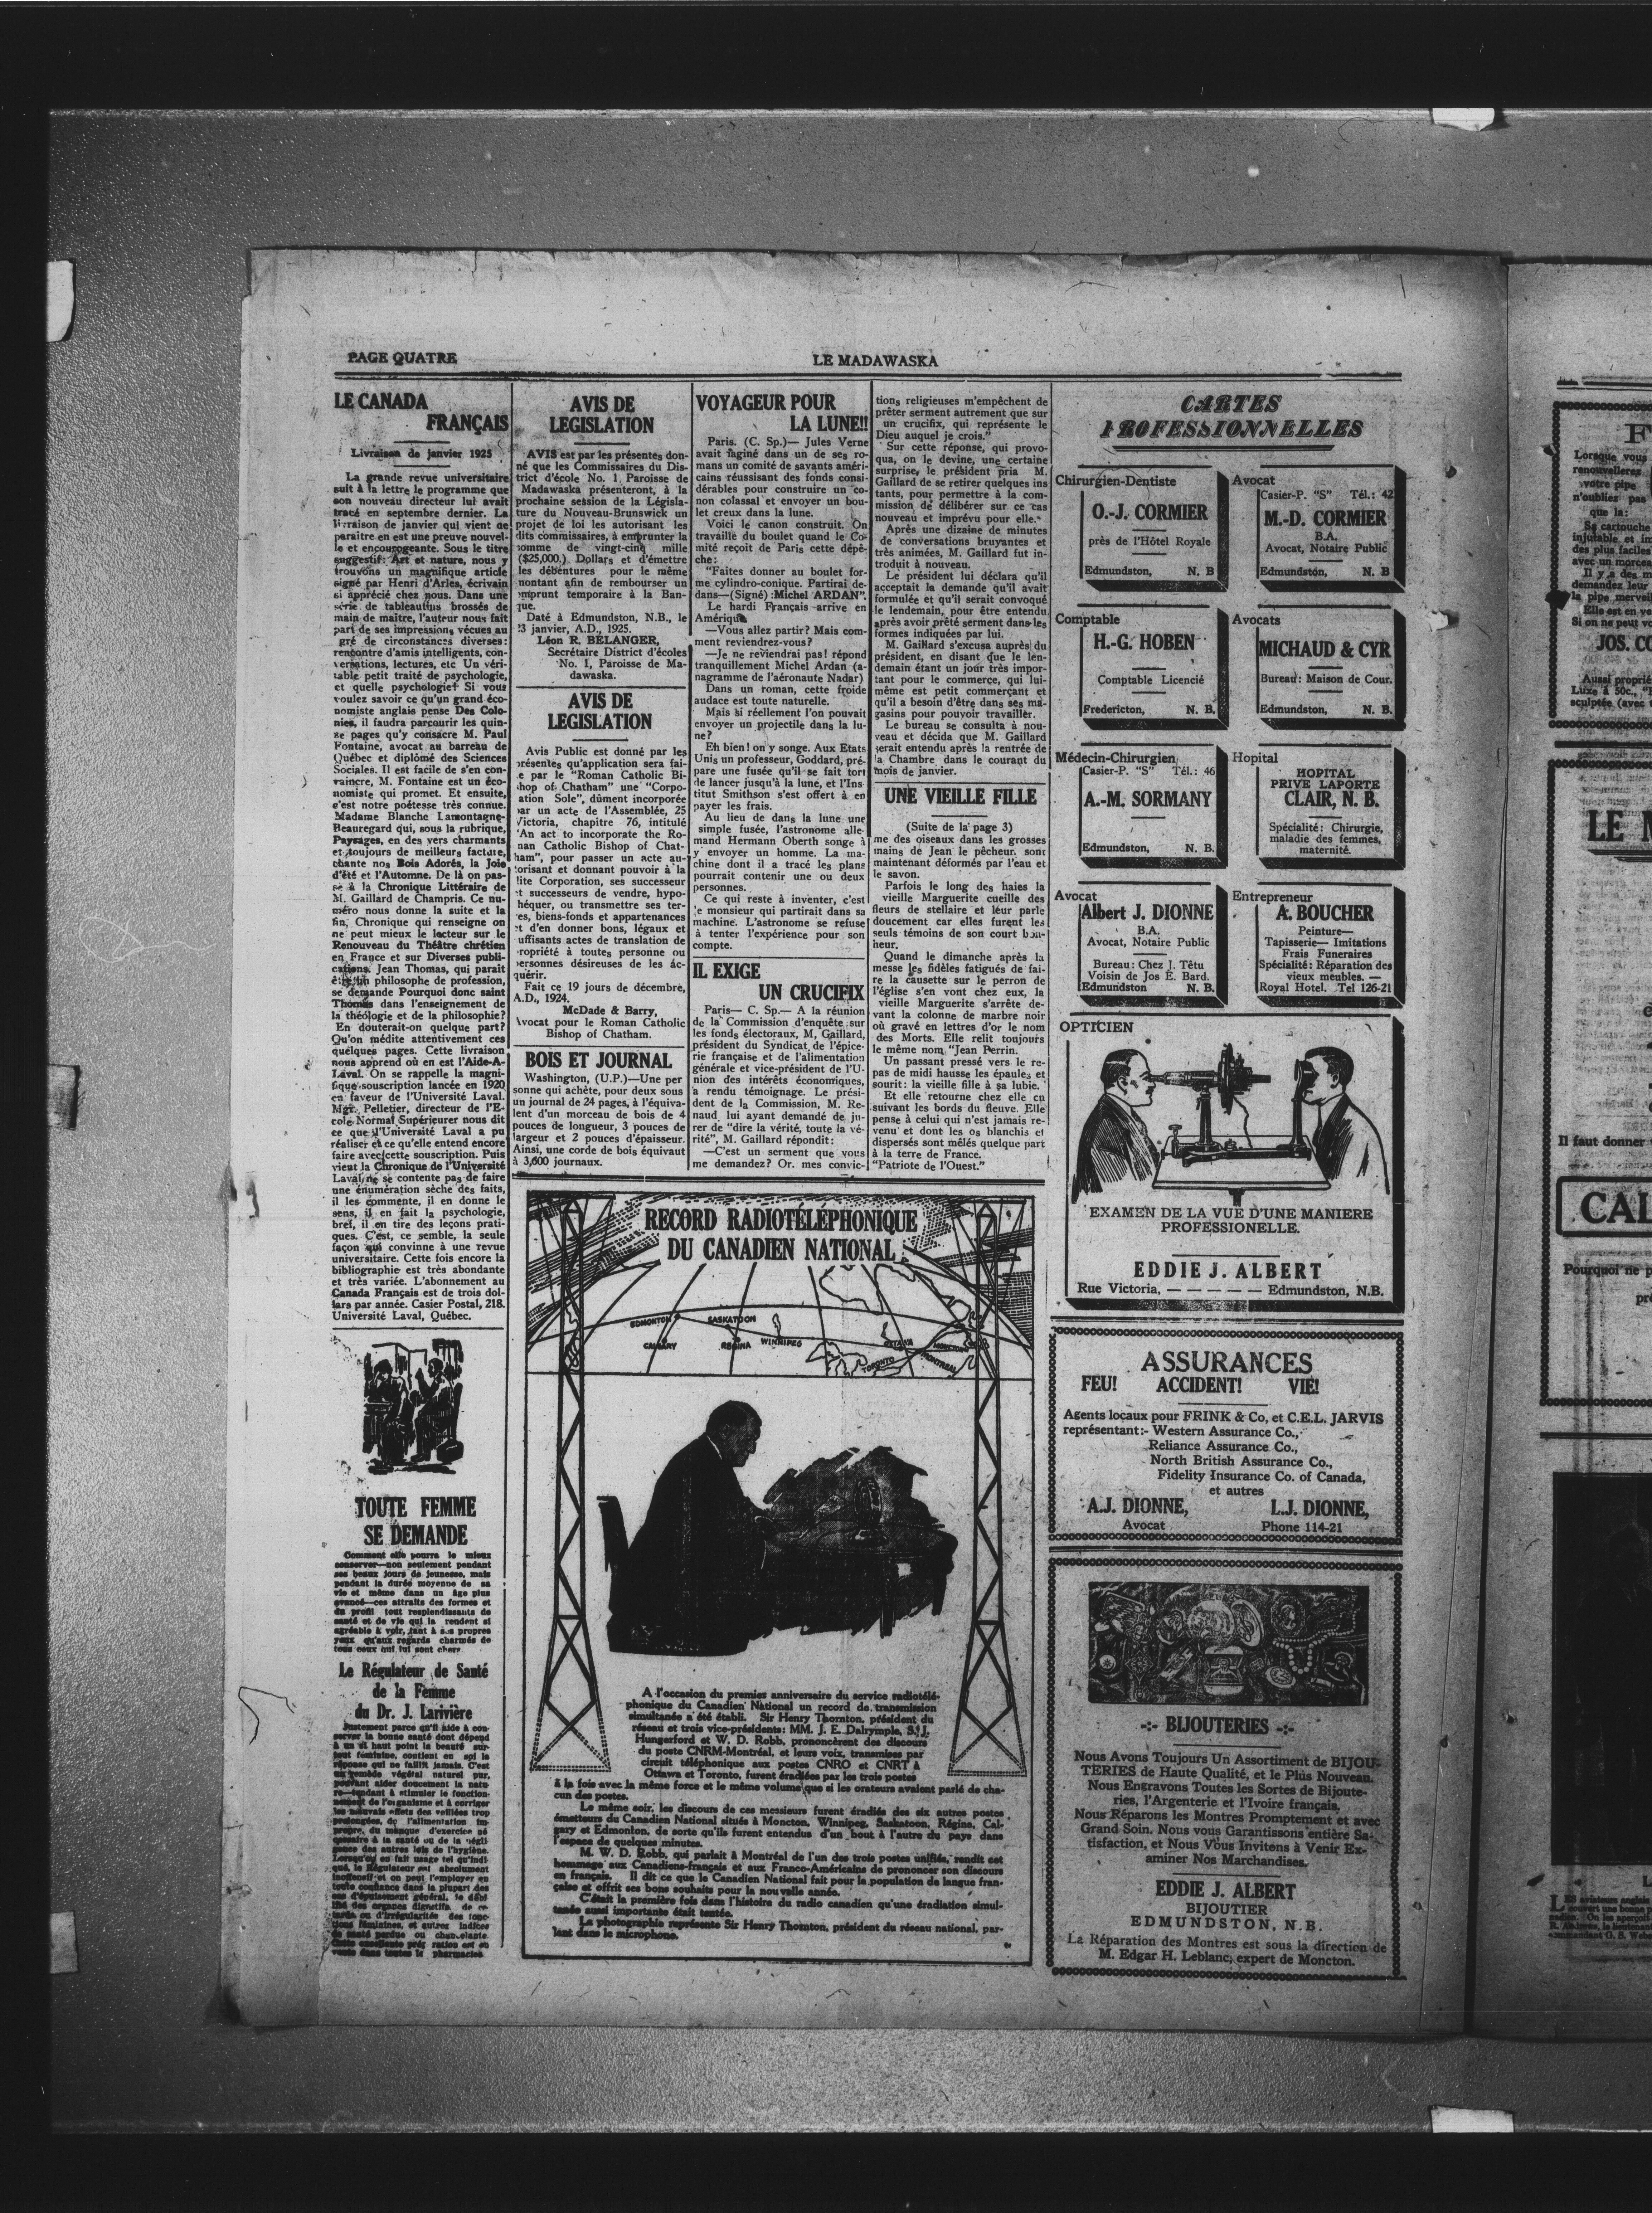 PAGE QUATRE
LE MADAWASKA
LE CANADA
FRANÇAIS
Livraison de janvier 1925
La grande revue universitaire
suit à la lettre le programme que
son nouveau directeur lui avait
tracé en septembre dernier. La
livraison de janvier qui vient de
paraitre en est une preuve nouvel-
le et encourogeante. Sous le titre
suggestif: Art et nature, nous y
trouvons un magnifique article
signé par Henri d'Arles, écrivain
si apprécié chez nous. Dans une
série de tableautins brossés de
main de maître, l'auteur nous fait
part de ses impressions vécues au
gré de circonstances diverses:
rencontre d'amis intelligents, con-
versations, lectures, etc Un véri-
table petit traité de psychologie,
et quelle psychologie! Si vous
voulez savoir ce qu'un grand éco-
nomiste anglais pense Des Colo-
nies, il faudra parcourir les quin-
ze pages qu'y consacre M. Paul
Fontaine, avocat au barreau de
Québec et diplômé des Sciences
Sociales. Il est facile de s'en con-
vaincre, M. Fontaine est un éco-
nomiste qui promet. Et ensuite,
c'est notre poétesse très connue.
Madame Blanche Lamontagne-
Beauregard qui, sous la rubrique,
Paysages, en des vers charmants
et toujours de meilleure facture,
chante nos Bois Adorés, la Joie
d'été et l'Automne. De là on pas-
se à la Chronique Littéraire de
M. Gaillard de Champris. Ce nu-
méro nous donne la suite et la
fin, Chronique qui renseigne on
ne peut mieux le lecteur sur le
Renouveau du Théâtre chrétien
en France et sur Diverses publi-
cations. Jean Thomas, qui parait
être un philosophe de profession,
se demande Pourquoi donc saint
Thomas dans l'enseignement de
la théologie et de la philosophie?
En douterait-on quelque part?
Qu'on médite attentivement ces
quelques pages. Cette livraison
nous apprend où en est l'Aide-A-
Laval. On se rappelle la magni-
fique souscription lancée en 1920
en faveur de l'Université Laval.
Mgr. Pelletier, directeur de l'E-
cole Normal Supérieurer nous dit
ce que l'Université Laval a pu
réaliser et ce qu'elle entend encore
faire avec cette souscription. Puis
vient la Chronique de l'Université
Laval, ne se contente pas de faire
une énumération sèche des faits,
il les commente, il en donne le
sens, il en fait la psychologie,
bref, il en tire des leçons prati-
ques. C'est, ce semble, la seule
façon qui convinne à une revue
universitaire. Cette fois encore la
bibliographie est très abondante
et très variée. L'abonnement au
Canada Français est de trois dol-
lars par année. Casier Postal, 218.
Université Laval, Québec.
TOUTE FEMME
SE DEMANDE
Comment elle pourra le mieux
conserver—non seulement pendant
ses beaux jours de jeunesse, mais
pendant la durée moyenne de sa
vie et même dans un âge plus
avancé—ces attraits des formes et
du profil tout resplendissants de
santé et de vie qui la rendent si
agréable à voir, tant à ses propres
yeux qu'aux regards charmés de
tous ceux qui lui sont chers.
Le Régulateur de Santé
de la Femme
du Dr. J. Larivière
Justement parce qu'il aide à con-
server la bonne santé dont dépend
à un si haut point la beauté sur-
tout féminine, contient en soi la
réponse qui ne faillit jamais. C'est
un remède végétal naturel pur,
pouvant aider doucement la natu-
re—tendant à stimuler le fonction-
nement de l'organisme et à corriger
les mauvais effets des veillées trop
prolongées, de l'alimentation im-
propre, du manque d'exercice né
cessaire à la santé ou de la négli
gence des autres lois de l'hygiène.
Lorsqu'on en fait usage tel qu'indi
qué, le Régulateur est absolument
inoffensif et on peut l'employer en
toute confiance dans la plupart des
cas d'épuisement général, le débi
lité des organes digestifs, de re-
tards ou d'irrégularités des fonc-
tions féminines, et autres indices
de santé perdue ou chancelante.
Cette excellente prép ration est en
vente dans toutes le pharmacies.
AVIS DE
LEGISLATION
AVIS est par les présentes don-
né que les Commissaires du Dis-
trict d'école No. 1 Paroisse de
Madawaska présenteront, à la
prochaine session de la Législa-
ture du Nouveau-Brunswick un
projet de loi les autorisant les
dits commissaires, à emprunter la
somme de vingt-cinq mille
($25,000.) Dollars et d'émettre
les débentures pour le même
montant afin de rembourser un
emprunt temporaire à la Ban-
que.
Daté à Edmundston, N.B., le
23 janvier, A.D., 1925.
Léon R. BELANGER,
Secrétaire District d'écoles
No. 1, Paroisse de Ma-
dawaska.
AVIS DE
LEGISLATION
Avis Public est donné par les
présentes qu'application sera fai-
te par le "Roman Catholic Bi-
shop of Chatham" une "Corpo-
ration Sole", dûment incorporée
par un acte de l'Assemblée, 25
Victoria, chapitre 76, intitulé
"An act to incorporate the Ro-
man Catholic Bishop of Chat-
ham", pour passer un acte au-
torisant et donnant pouvoir à la
dite Corporation, ses successeur
et successeurs de vendre, hypo-
théquer, ou transmettre ses ter-
res, biens-fonds et appartenances
et d'en donner bons, légaux et
suffisants actes de translation de
propriété à toutes personne ou
personnes désireuses de les ac-
quérir.
Fait ce 19 jours de décembre,
A.D., 1924.
McDade & Barry,
Avocat pour le Roman Catholic
Bishop of Chatham.
BOIS ET JOURNAL
Washington, (U.P.)—Une per
sonne qui achète, pour deux sous
un journal de 24 pages, à l'équiva-
lent d'un morceau de bois de 4
pouces de longueur, 3 pouces de
largeur et 2 pouces d'épaisseur.
Ainsi, une corde de bois équivaut
à 3,600 journaux.
VOYAGEUR POUR
LA LUNE!!
Paris. (C. Sp.)— Jules Verne
avait faginé dans un de ses ro-
mans un comité de savants améri-
cains réussisant des fonds consi-
dérables pour construire un ca-
non colassal et envoyer un bou-
let creux dans la lune.
Voici le canon construit. On
travaille du boulet quand le Co-
mité reçoit de Paris cette dépê-
che:
"Faites donner au boulet for-
me cylindro-conique. Partirai de-
dans—(Signé) :Michel ARDAN".
Le hardi Français arrive en
Amérique
—Vous allez partir? Mais com-
ment reviendrez-vous?
—Je ne reviendrai pas! répond
tranquillement Michel Ardan (a-
nagramme de l'aéronaute Nadar)
Dans un roman, cette froide
audace est toute naturelle.
Mais si réellement l'on pouvait
envoyer un projectile dans la lu-
ne?
Eh bien! on y songe. Aux Etats
Unis un professeur, Goddard, pré-
pare une fusée qu'il se fait fort
de lancer jusqu'à la lune, et l'Ins-
titut Smithson s'est offert à en
payer les frais.
Au lieu de dans la lune une
simple fusée, l'astronome alle-
mand Hermann Oberth songe à
y envoyer un homme. La ma-
chine dont il a tracé les plans
pourrait contenir une ou deux
personnes.
Ce qui reste à inventer, c'est
le monsieur qui partirait dans sa
machine. L'astronome se refuse
à tenter l'expérience pour son
compte.
IL EXIGE
UN CRUCIFIX
Paris— C. Sp.— A la réunion
de la Commission d'enquête sur
les fonds électoraux, M, Gaillard,
président du Syndicat de l'épice-
rie française et de l'alimentation
générale et vice-président de l'U-
nion des intérêts économiques,
a rendu témoignage. Le prési-
dent de la Commission, M. Re-
naud lui ayant demandé de ju-
rer de "dire la vérité, toute la vé-
rité", M. Gaillard répondit:
—C'est un serment que vous
me demandez? Or. mes convic-
tions religieuses m'empêchent de
prêter serment autrement que sur
un crucifix, qui représente le
Dieu auquel je crois."
Sur cette réponse, qui provo-
qua, on le devine, une certaine
surprise, le président pria M.
Gaillard de se retirer quelques ins
tants, pour permettre à la com-
mission de délibérer sur ce cas
nouveau et imprévu pour elle.
Après une dizaine de minutes
de conversations bruyantes et
très animées, M. Gaillard fut in-
troduit à nouveau.
Le président lui déclara qu'il
acceptait la demande qu'il avait
formulée et qu'il serait convoqué
le lendemain, pour être entendu
après avoir prêté serment dans les
formes indiquées par lui.
M. Gaillard s'excusa auprès du
président, en disant que le len-
demain étant un jour très impor-
tant pour le commerce, qui lui-
même est petit commerçant et
qu'il a besoin d'être dans ses ma-
gasins pour pouvoir travailler.
Le bureau se consulta à nou-
veau et décida que M. Gaillard
serait entendu après la rentrée de
la Chambre dans le courant du
mois de janvier.
UNE VIEILLE FILLE
(Suite de la page 3)
me des oiseaux dans les grosses
mains de Jean le pêcheur. sont
maintenant déformés par l'eau et
le savon.
Parfois le long des haies la
vieille Marguerite cueille des
fleurs de stellaire et leur parle
doucement car elles furent les
seuls témoins de son court bon-
heur.
Quand le dimanche après la
messe les fidèles fatigués de fai-
re la causette sur le perron de
l'église s'en vont chez eux, la
vieille Marguerite s'arrête de-
vant la colonne de marbre noir
où gravé en lettres d'or le nom
des Morts. Elle relit toujours
le même nom "Jean Perrin.
Un passant pressé vers le re-
pas de midi hausse les épaules et
sourit: la vieille fille à sa lubie.
Et elle retourne chez elle en
suivant les bords du fleuve. Elle
pense à celui qui n'est jamais re-
venu et dont les os blanchis et
dispersés sont mêlés quelque part
à la terre de France.
"Patriote de l'Ouest."
RECORD RADIOTÉLÉPHONIQUE
DU CANADIEN NATIONAL
EDMONTON
SASKATOON
CALGARY
REGINA
WINNIPEG
OTTAWA
TORONTO
MONCTON
MONTREAL
A l'occasion du premies anniversaire du service radiotélé-
phonique du Canadien National un record de transmission
simultanée a été établi. Sir Henry Thornton, président du
réseau et trois vice-présidents: MM. J. E. Dalrymple, S. J.
Hungerford et W. D. Robb, prononcèrent des discours
du poste CNRM-Montréal, et leurs voix, transmises par
circuit téléphonique aux postes CNRO et CNRT à
Ottawa et Toronto, furent éradiées par les trois postes
à la fois avec la même force et le même volume que si les orateurs avaient parlé de cha-
cun des postes.
Le même soir, les discours de ces messieurs furent éradiés des six autres postes
émetteurs du Canadien National situés à Moncton, Winnipeg, Saskatoon, Régina, Cal-
gary et Edmonton, de sorte qu'ils furent entendus d'un bout à l'autre du pays dans
l'espace de quelques minutes.
M. W. D. Robb, qui parlait à Montréal de l'un des trois postes unifiés, rendit cet
hommage aux Canadiens-français et aux Franco-Américains de prononcer son discours
en français. Il dit ce que le Canadien National fait pour la population de langue fran-
çaise et offrit ses bons souhaits pour la nouvelle année.
C'était la première fois dans l'histoire du radio canadien qu'une éradiation simul-
tanée aussi importante était tentée.
La photographie représente Sir Henry Thornton, président du réseau national, par-
lant dans le microphone.
CARTES
PROFESSIONNELLES
Chirurgien-Dentiste
O.-J. CORMIER
près de l'Hôtel Royale
Edmundston, N. B
Avocat
Casier-P. "S" Tél.: 42
M.-D. CORMIER
B.A.
Avocat, Notaire Public
Edmundston, N. B
Comptable
H.-G. HOBEN
Comptable Licencié
Fredericton, N. B.
Avocats
MICHAUD & CYR
Bureau: Maison de Cour.
Edmundston, N. B.
Médecin-Chirurgien
Casier-P. "S" Tél.: 46
A.-M. SORMANY
Edmundston, N. B.
Hopital
HOPITAL
PRIVE LAPORTE
CLAIR, N. B.
Spécialité: Chirurgie,
maladie des femmes,
maternité.
Avocat
Albert J. DIONNE
B.A.
Avocat, Notaire Public
Bureau: Chez J. Têtu
Voisin de Jos E. Bard.
Edmundston N. B.
Entrepreneur
A. BOUCHER
Peinture—
Tapisserie— Imitations
Frais Funeraires
Spécialité: Réparation des
vieux meubles. —
Royal Hotel. Tel 126-21
OPTICIEN
EXAMEN DE LA VUE D'UNE MANIERE
PROFESSIONELLE.
EDDIE J. ALBERT
Rue Victoria, — — — — — Edmundston, N.B.
ASSURANCES
FEU! ACCIDENT! VIE!
Agents locaux pour FRINK & Co, et C.E.L. JARVIS
représentant:- Western Assurance Co.,
Reliance Assurance Co.,
North British Assurance Co.,
Fidelity Insurance Co. of Canada,
et autres
A.J. DIONNE, L.J. DIONNE,
Avocat Phone 114-21
-:- BIJOUTERIES -:-
Nous Avons Toujours Un Assortiment de BIJOU-
TERIES de Haute Qualité, et le Plus Nouveau.
Nous Engravons Toutes les Sortes de Bijoute-
ries, l'Argenterie et l'Ivoire français,
Nous Réparons les Montres Promptement et avec
Grand Soin. Nous vous Garantissons entière Sa-
tisfaction, et Nous Vous Invitons à Venir Ex-
aminer Nos Marchandises.
EDDIE J. ALBERT
BIJOUTIER
EDMUNDSTON, N. B.
La Réparation des Montres est sous la direction de
M. Edgar H. Leblanc, expert de Moncton.
F
Lorsque vous
renouvellerez
votre pipe
n'oubliez pas
que la:
Sa cartouche
injutable et im
des plus faciles
avec un morcea
Il y a des m
demandez leur
la pipe merveil
Elle est en ve
Si on ne peut vo
JOS. CO
Aussi proprié
Luxe à 50c., "
sculptée (avec
LE M
Il faut donner
CAL
Pourquoi ne p
pré